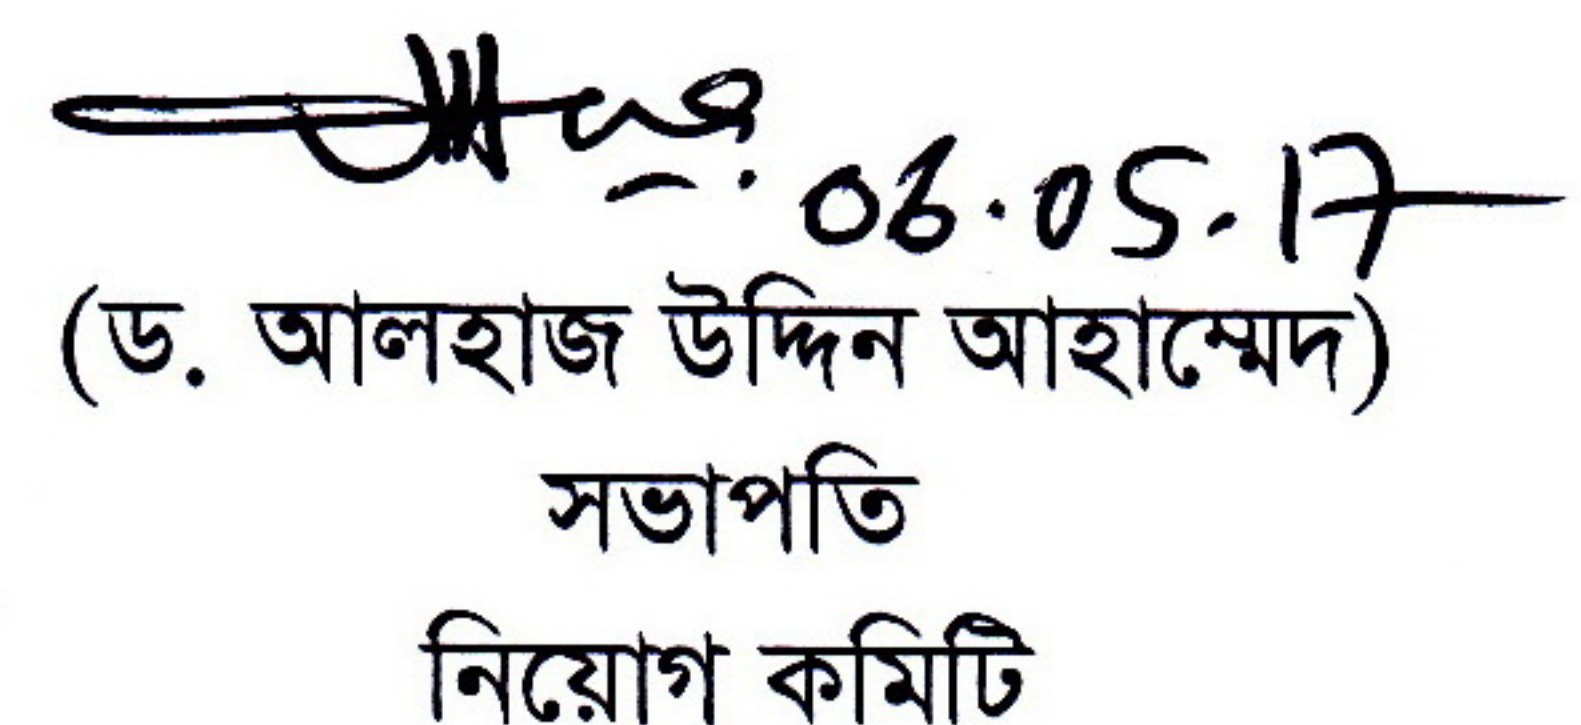 06.05.17
(ড. আলহাজ উদ্দিন আহাম্মেদ)
সভাপতি
নিয়োগ কমিটি